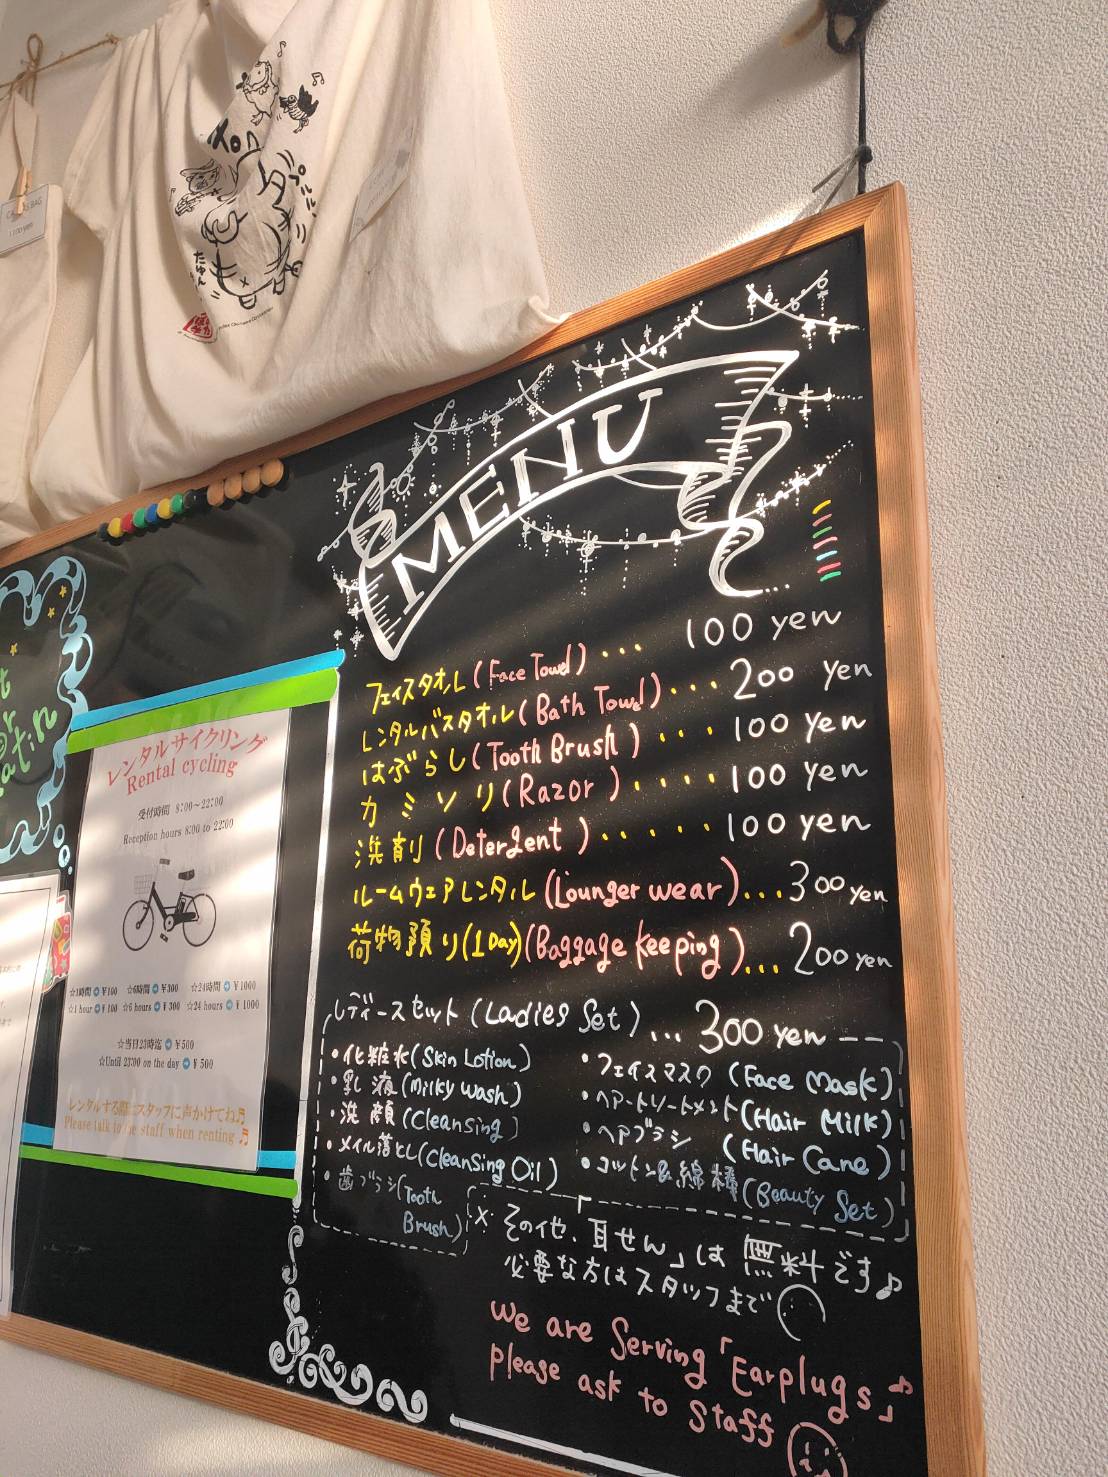 CANVAS BAG
1100 yen
たゆん
MENU
フェイスタオル(Face Towel)... 100 yen
レンタルバスタオル(Bath Towel)... 200 yen
はぶらし(Tooth Brush)... 100 yen
カミソリ(Razor).... 100 yen
洗剤(Detergent)..... 100 yen
ルームウェアレンタル(Lounger wear)...300 yen
荷物預り(1Day)(Baggage Keeping)... 200 yen
レディースセット(Ladies Set)... 300 yen
・化粧水(Skin Lotion)
・乳液(Milky Wash)
・洗顔(Cleansing)
・メイル落とし(Cleansing Oil)
・歯ブラシ(Tooth
Brush)
・フェイスマスク(Face Mask)
・ヘアートリートメント(Hair Milk)
・ヘアブラシ(Hair Cane)
・コットン&綿棒(Beauty Set)
※その他、「耳せん」は無料です♪
必要な方はスタッフまで
We are Serving「Earplugs」♪
Please ask to Staff
レンタルサイクリング
Rental cycling
受付時間 8:00~22:00
Reception hours 8:00 to 22:00
☆1時間➡¥100 ☆6時間➡¥300 ☆24時間➡¥1000
☆1 hour➡¥100 ☆6 hours➡¥300 ☆24 hours➡¥1000
☆当日23時迄➡¥500
☆Until 23:00 on the day➡¥500
レンタルする際はスタッフに声かけてね♬
Please talk to the staff when renting ♬